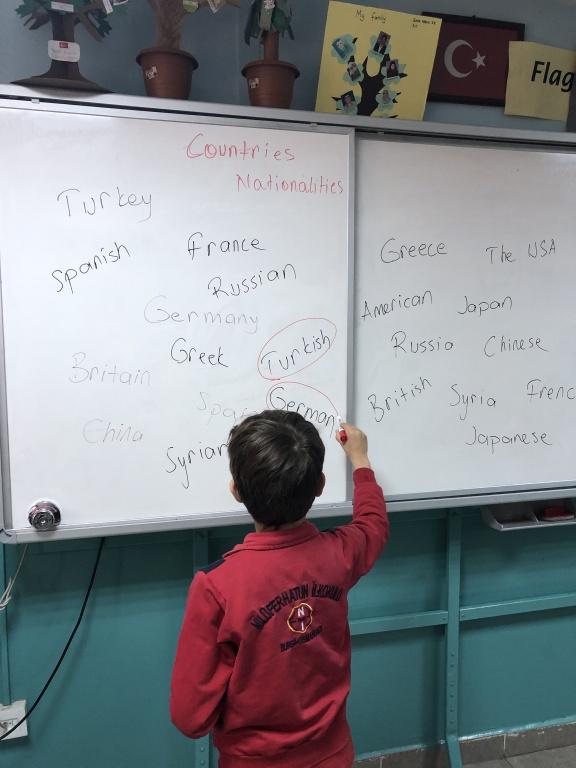 My family
Flag
Countries
Nationalities
Turkey
Spanish
France
Russian
Germany
Greek
Turkish
Britain
German
China
Syrian
Greece
The USA
American
Japan
Russia
Chinese
British
Syria
Frenc
Japanese
NİLÜFERHATUN İLKOKULU
N